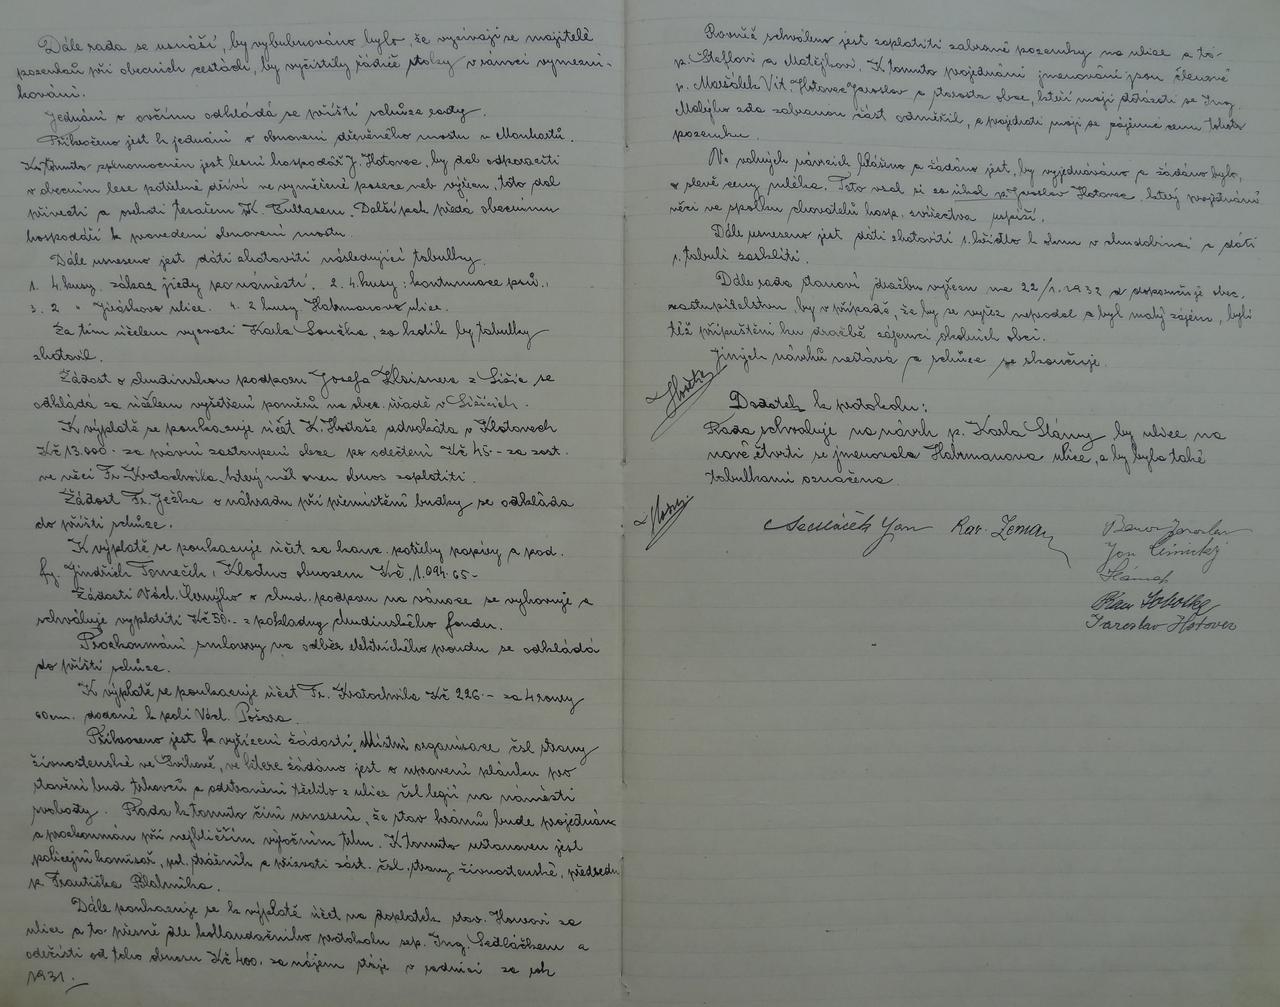 Dále rada se usnáší, by vybubnováno bylo, že vyzívají se majitelé
pozemků při obecních cestách, by vyčistily řádně stoky v rámci vymezni-
kování.
Jednání o ovčínu odkládá se příští schůze rady.
Přikročeno jest k jednání o obnovení dřevěného mostu u Monhartů.
K tomuto zplnomocněn jest lesní hospodář J. Hotovec, by dal odpraciti
v obecním lese potřebné dříví ve vyměřené pasece neb výřezu, toto dal
přivésti a osekati tesařem K. Bultasem. Další pak předá obecnímu
hospodáři k provedení obnovení mostu.
Dále usneseno jest dáti zhotoviti následující tabulky.
1. 4 kusy. zákaz jízdy po náměstí. 2. 4. kusy: kontumace psů.,
3. 2 " Jiráskova ulice. 4. 2 kusy Habrmanova ulice.
Za tím účelem vyzvati Karla Loužka, za kolik by tabulky
zhotovil.
Žádost o chudinskou podporu Josefa Klaisnera z Sižic se
odkládá za účelem vyšetření poměrů na obec. úřadě v Sižicích.
K výplatě se poukazuje účet K. Hostaše advokáta v Klatovech
Kč 13.000.- za právní zastoupení obce po odečtení Kč 45.- za zast.
ve věci Fr. Kratochvila, který měl onen obnos zaplatiti.
Žádost Fr. Ježka o náhradu při přemístění budky se odkláda
do příští schůze.
K výplatě se poukazuje účet za kanc. potřeby papíry a pod.
fy. Jindřich Tomečík, Kladno obnosem Kč 1.094.65-
Žádosti Václ. Černýho o chud. podporu na vánoce se vyhovuje a
schvaluje vyplatiti Kč 50.- z pokladny chudinského fondu.
Prozkoumání smlouvy na odběr elektrického proudu se odkládá
do příští schůze.
K výplatě se poukazuje účet Fr. Kratochvila Kč 226.- za 4 roury
60 cm. dodané k poli Václ. Požára.
Přikročeno jest k vyřízení žádosti Místní organisace čsl strany
živnostenské ve Švihově, ve které žádáno jest o upravení plánku pro
stavění bud trhovců a odstranění těchto z ulice čsl legií na náměstí
svobody. Rada k tomuto činí usnesení, že stav krámů bude projednán
a prozkoumán při nejbližším výročním trhu. K tomuto ustanoven jest
policejní komisař, pol. strážník a přizvati zást. čsl. strany živnostenské, předsedu
p. Františka Blahníka.
Dále poukazuje se k výplatě účet na doplatek stav. Houovi za
ulice a to přesně dle kollaudačního protokolu sep. Ing. Sedláčkem a
odečísti od toho obnosu Kč 400. za nájem stáje v radnici za rok
1931.
Rovněž schválen jest zaplatiti zabrané pozemky na ulice a to
p. Šteflovi a Matějkovi. K tomuto projednání jmenováni jsou členové
p. Maršálek Vít. Hotovec Jaroslav a starosta obce, kteří mají dotázati se Ing.
Matějko zda zabranou část odměřil, a projednati mají se zájemci cenu tohoto
pozemku.
Na volných návrzích hlášeno a žádáno jest, by vyjednáváno a žádáno bylo,
o slevě ceny mléka. Toto vzal si za úkol p. Jaroslav Hotovec, který projednání
věci ve spolku chovatelů hosp. zvířectva uspíší.
Dále usneseno jest dáti zhotoviti 1. křídlo k oknu v chudobinci a dáti
1. tabuli zaskliti.
Dále rada stanoví dražbu výřezu na 22/1. 1932 a doporučuje obec.
zastupitelstvu, by v případě, že by se výřez neprodal a byl malý zájem, byli
též připuštěni ku dražbě zájemci okolních obcí.
Jiných návrhů nestává a schůze se skončuje.
Dodatek k protokolu:
Rada schvaluje na návrh p. Karla Slámy by ulice na
nové čtvrti se jmenovala Habrmanova ulice, a by byla také
tabulkami označena.
Sedláček Jan Kar. Zeman
Jaroslav
Jan
Sláma K
Sobotka
Jaroslav Hotovec